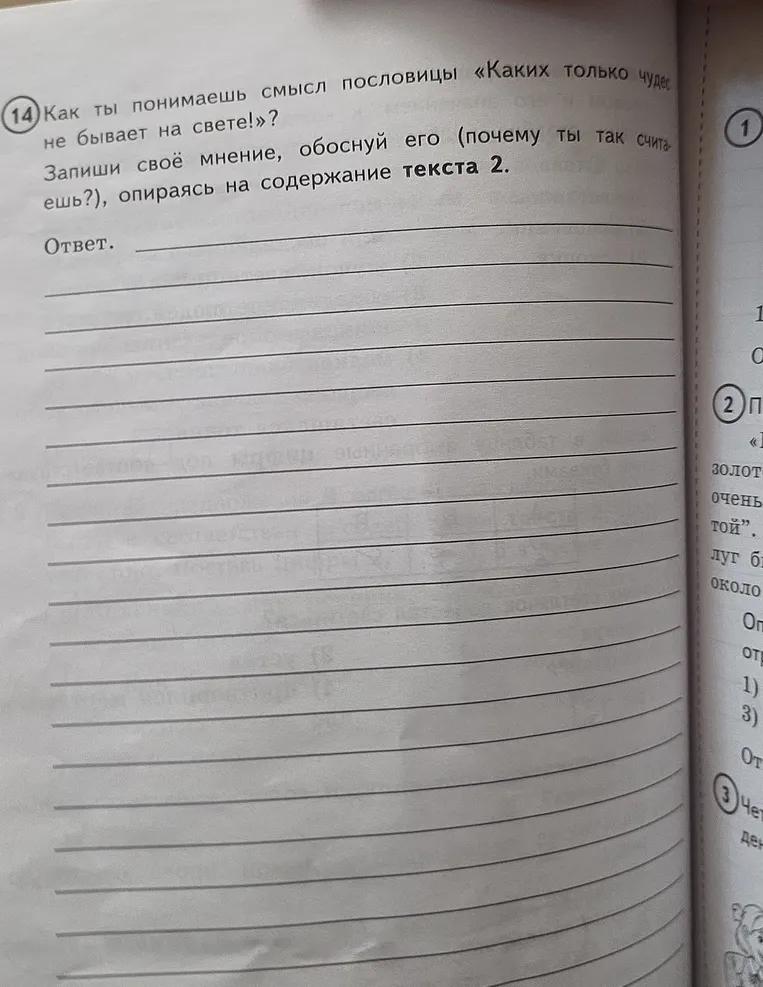 14 Как ты понимаешь смысл пословицы «Каких только чудес
не бывает на свете!»?
Запиши своё мнение, обоснуй его (почему ты так счита-
ешь?), опираясь на содержание текста 2.
Ответ.
1
1
2 П
золот
очень
той”.
луг
около
1)
3)
От
3